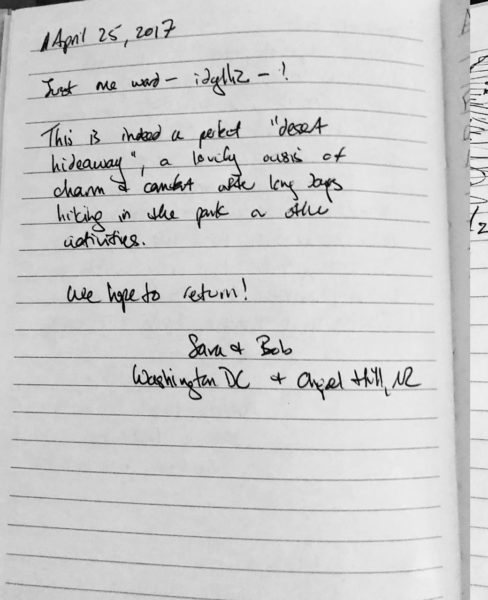 April 25, 2017
Just one word - idyllic - !
This is indeed a perfect "desert
hideaway", a lovely oasis of
charm & comfort after long days
hiking in the park or other
activities.
We hope to return!
Sara & Bob
Washington DC & Chapel Hill, NC